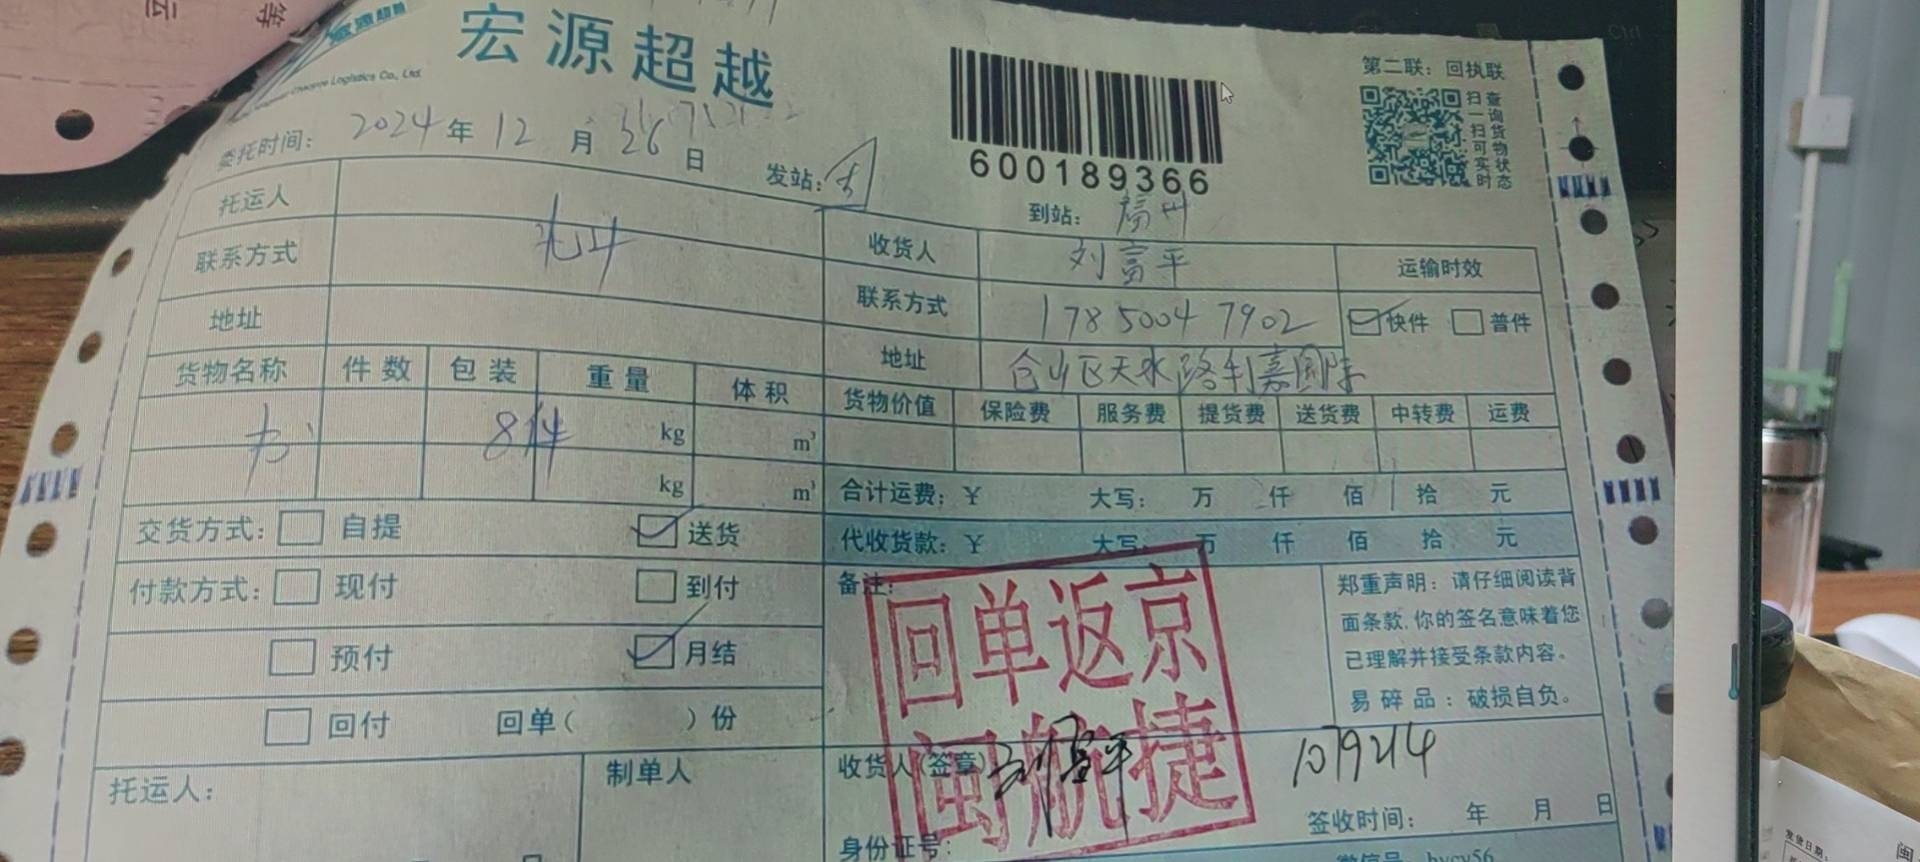 宏源超越
第二联：回执联
扫一扫可实时
查询货物状态
600189366
委托时间：2024年12月26日
发站：
到站：福州
托运人
收货人 刘富平
运输时效
联系方式
联系方式 17850047902
快件 普件
地址
地址 仓山区天水路利嘉国际
货物名称 件数 包装 重量 体积
货物价值 保险费 服务费 提货费 送货费 中转费 运费
8件 kg m³
kg m³
合计运费：¥ 大写： 万 仟 佰 拾 元
交货方式： 自提 送货
代收货款：¥ 大写： 万 仟 佰 拾 元
付款方式： 现付 到付
备注：
郑重声明：请仔细阅读背
面条款，你的签名意味着您
已理解并接受条款内容。
易碎品：破损自负。
预付 月结
回付 回单（ ）份
回单返京
闽航捷
托运人：
制单人
收货人（签章） 刘富平
1079214
签收时间： 年 月 日
身份证号：
微信号：hycy56